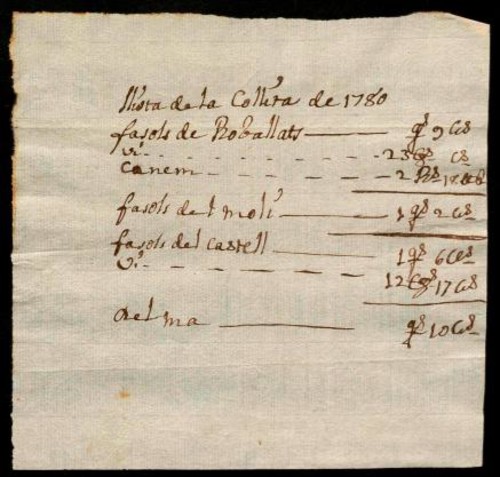 llista de la Collita de 1780
fasols de Roballats — qs 9 Cs
vi - - - - 23 Cs
Canem - - - - 2
fasols del moli — 1 qs 2 Cs
fasols del Castell — 1 qs 6 Cs
vi - - - - 12 17 Cs
del ma — qs 10 Cs